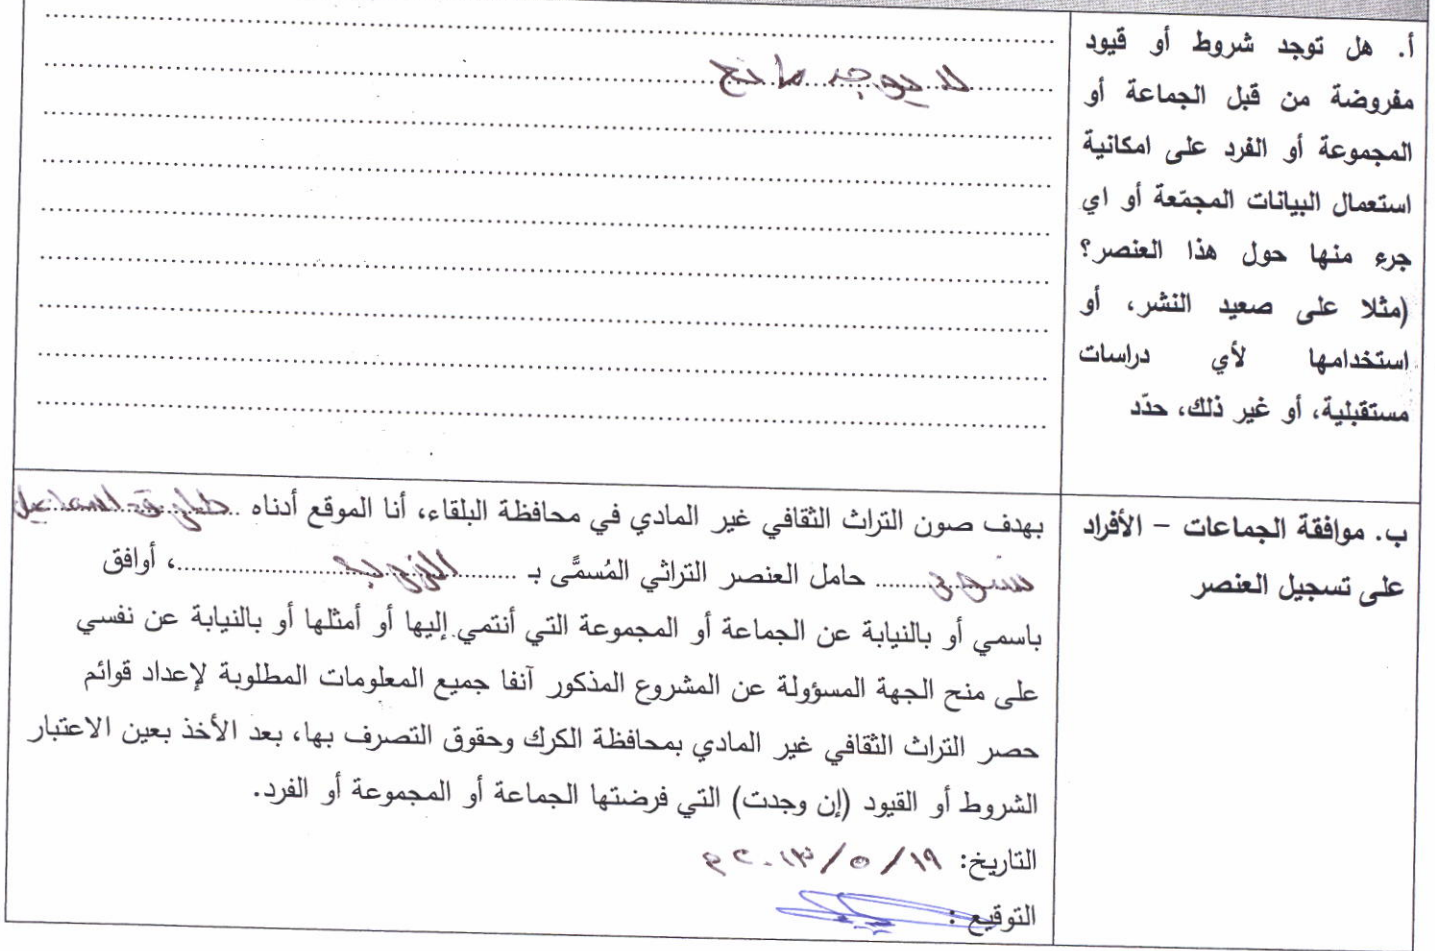 أ. هل توجد شروط أو قيود
مفروضة من قبل الجماعة أو
المجموعة أو الفرد على امكانية
استعمال البيانات المجمّعة أو اي
جزء منها حول هذا العنصر؟
(مثلا على صعيد النشر، أو
استخدامها لأي دراسات
مستقبلية، أو غير ذلك، حدّد
لا يوجد مانع
ب. موافقة الجماعات – الأفراد
على تسجيل العنصر
بهدف صون التراث الثقافي غير المادي في محافظة البلقاء، أنا الموقع أدناه
حامل العنصر التراثي المُسمًّى بـ ، أوافق
باسمي أو بالنيابة عن الجماعة أو المجموعة التي أنتمي إليها أو أمثلها أو بالنيابة عن نفسي
على منح الجهة المسؤولة عن المشروع المذكور آنفا جميع المعلومات المطلوبة لإعداد قوائم
حصر التراث الثقافي غير المادي بمحافظة الكرك وحقوق التصرف بها، بعد الأخذ بعين الاعتبار
الشروط أو القيود (إن وجدت) التي فرضتها الجماعة أو المجموعة أو الفرد.
التاريخ: ١٩/٥/٢٠١٣م
التوقيع :